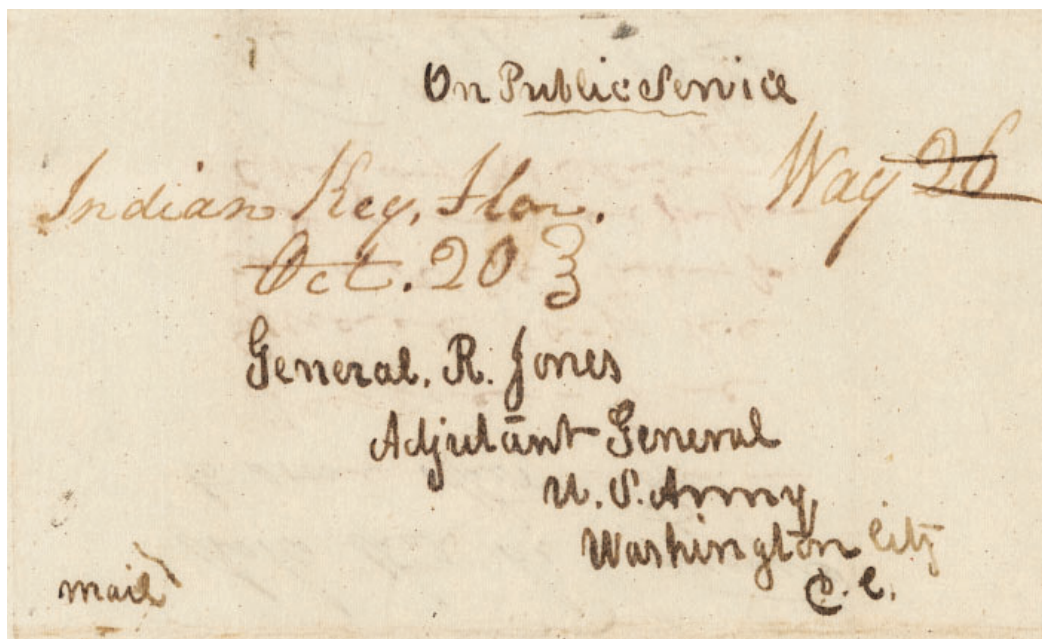 On Public Service
Indian Key, Flor. Way 26
Oct. 20
General. R. Jones
Adjutant General
U. S. Army,
Washington City
D. C.
mail